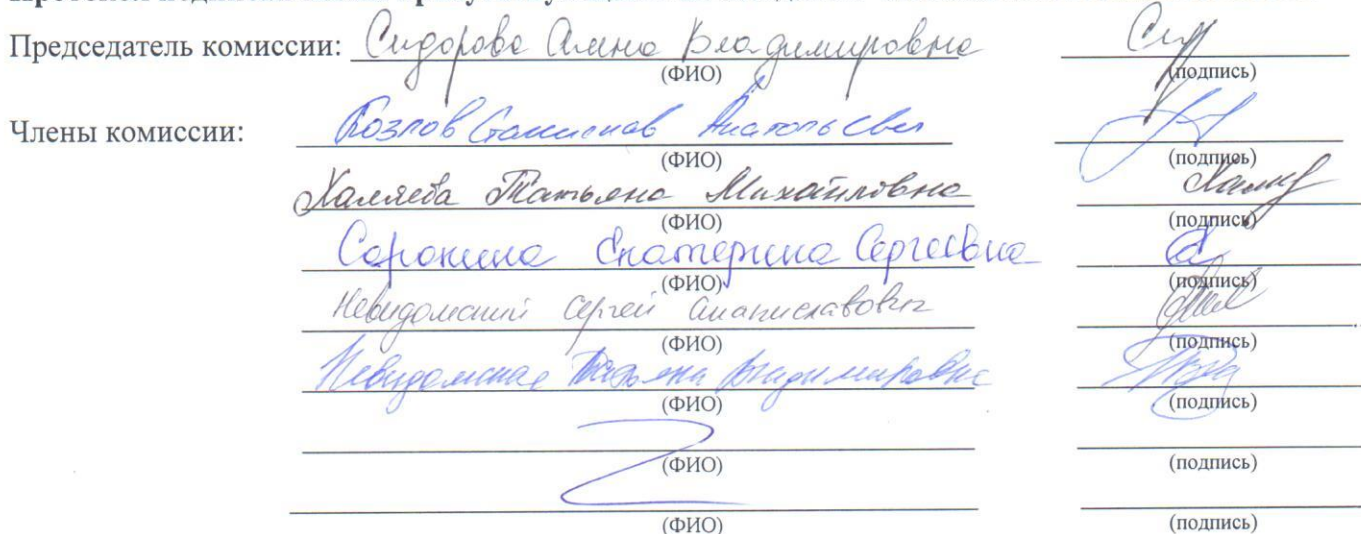 Председатель комиссии: Сидорова Алина Владимировна
(ФИО) (подпись)
Члены комиссии: Козлов Станислав Анатольевич
(ФИО) (подпись)
Халяева Татьяна Михайловна
(ФИО) (подпись)
Сорокина Екатерина Сергеевна
(ФИО) (подпись)
Невидомский Сергей Станиславович
(ФИО) (подпись)
Невидомская Татьяна Владимировна
(ФИО) (подпись)
(ФИО) (подпись)
(ФИО) (подпись)